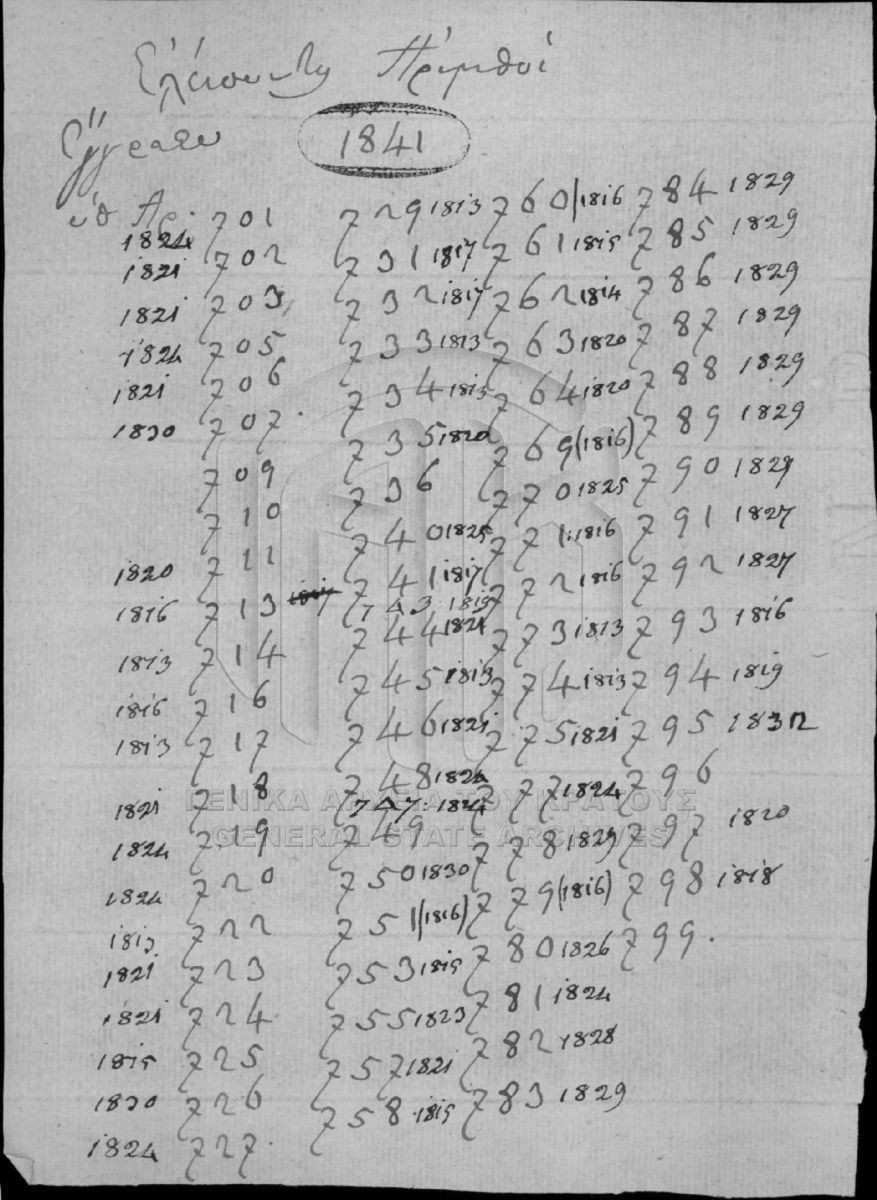 Ἐλείπουν τῃ Ἀριμθοί
Ἔγγραφα 1841
ὑπ Ἀρ.
1824 701 729 1813 760 (1816 784 1829
1821 702 731 1817 761 1815 785 1829
1821 703 732 1817 762 1814 786 1829
1824 705 733 1813 763 1820 787 1829
1821 706 734 1815 764 1820 788 1829
1830 707. 735 1820 769 (1816) 789 1829
709 736 770 1825 790 1829
710 740 1825 771 1816 791 1827
1820 711 741 1817 772 1816 792 1827
1816 713 1817 743 1819
1813 714 744 1821 773 1813 793 1816
1816 716 745 1813 774 1813 794 1819
1813 717 746 1821 775 1821 795 1832
1821 718 748 1824 777 1824 796
747: 1824
1824 719 749 778 1829 797 1820
1824 720 750 1830 779 (1816) 798 1818
1813 722 751 (1816) 780 1826 799.
1821 723 753 1815 781 1824
1821 724 755 1823 782 1828
1815 725 757 1821 783 1829
1830 726 758 1815
1824 727.
ΓΕΝΙΚΑ ΑΡΧΕΙΑ ΤΟΥ ΚΡΑΤΟΥΣ
GENERAL STATE ARCHIVES